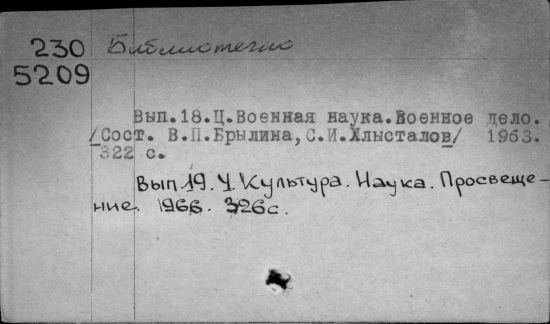 230 Библиотечно
5209
Вып.18.Ц.Военная наука.Военное дело.
/Сост. В.П.Брылина,С.И.Хлысталов/ 1963.
322 с.
Вып.19. Ч. Культура. Наука. Просвеще-
ние. 1966. 326с.